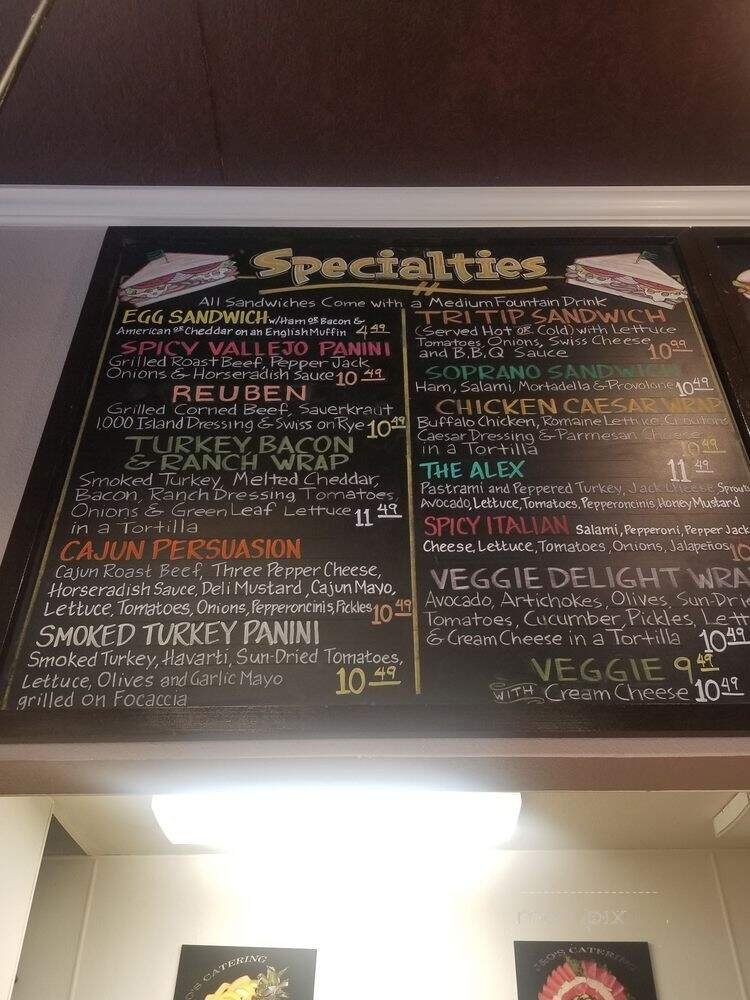 Specialties
All Sandwiches Come with a Medium Fountain Drink
EGG SANDWICH w/Ham or Bacon &
American or Cheddar on an English Muffin 4 49
SPICY VALLEJO PANINI
Grilled Roast Beef, Pepper Jack,
Onions & Horseradish Sauce 10 49
REUBEN
Grilled Corned Beef, Sauerkraut
1,000 Island Dressing & Swiss on Rye 10 49
TURKEY, BACON
& RANCH WRAP
Smoked Turkey, Melted Cheddar,
Bacon, Ranch Dressing, Tomatoes,
Onions & Green Leaf Lettuce 11 49
in a Tortilla
CAJUN PERSUASION
Cajun Roast Beef, Three Pepper Cheese,
Horseradish Sauce, Deli Mustard, Cajun Mayo,
Lettuce, Tomatoes, Onions, Pepperoncinis, Pickles 10 49
SMOKED TURKEY PANINI
Smoked Turkey, Havarti, Sun-Dried Tomatoes,
Lettuce, Olives and Garlic Mayo 10 49
grilled on Focaccia
TRI TIP SANDWICH
(Served Hot or Cold) with Lettuce
Tomatoes, Onions, Swiss Cheese
and B.B.Q Sauce 10 99
SOPRANO SANDWICH
Ham, Salami, Mortadella & Provolone 10 49
CHICKEN CAESAR WRAP
Buffalo Chicken, Romaine Lettuce, Croutons
Caesar Dressing & Parmesan Cheese
in a Tortilla 10 49
THE ALEX 11 49
Pastrami and Peppered Turkey, Jack Cheese Sprouts
Avocado, Lettuce, Tomatoes, Pepperoncinis, Honey Mustard
SPICY ITALIAN Salami, Pepperoni, Pepper Jack
Cheese, Lettuce, Tomatoes, Onions, Jalapeños 10
VEGGIE DELIGHT WRA
Avocado, Artichokes, Olives, Sun-Drie
Tomatoes, Cucumber, Pickles, Lett
& Cream Cheese in a Tortilla 10 49
VEGGIE 9 49
WITH Cream Cheese 10 49
O'S CATERING
O'S CATERING